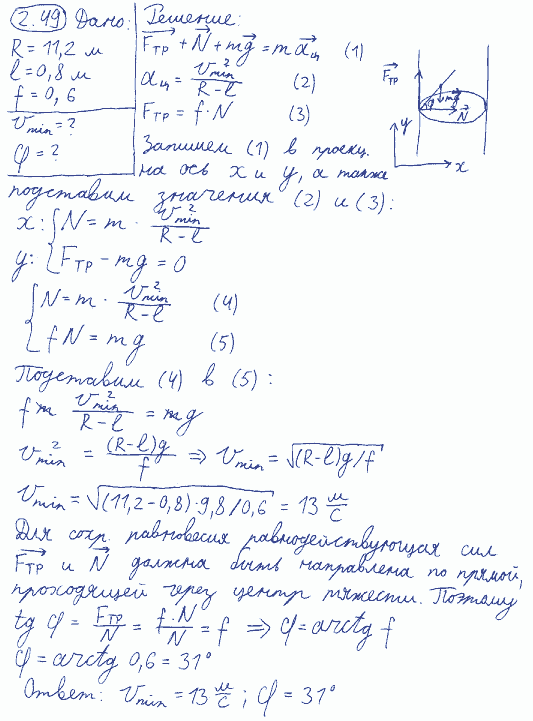 2.49 Дано:
R = 11,2 м
l = 0,8 м
f = 0,6
v_min = ?
φ = ?
Решение:
F⃗тр + N⃗ + mg⃗ = m a⃗ц (1)
aц = v²min / (R-l) (2)
Fтр = f·N (3)
Запишем (1) в проекц.
на ось x и y, а также
F⃗тр
φ mg⃗
N⃗
y
x
подставим значения (2) и (3):
x: { N = m · v²min / (R-l)
y: { Fтр - mg = 0
{ N = m · v²min / (R-l) (4)
{ f N = mg (5)
Подставим (4) в (5):
f m v²min / (R-l) = mg
v²min = (R-l)g / f ⇒ vmin = √((R-l)g/f)
vmin = √((11,2-0,8)·9,8/0,6) = 13 м/с
Для сохр. равновесия равнодействующая сил
F⃗тр и N⃗ должна быть направлена по прямой,
проходящей через центр тяжести. Поэтому
tg φ = Fтр/N = f·N/N = f ⇒ φ = arctg f
φ = arctg 0,6 = 31°
Ответ: vmin = 13 м/с ; φ = 31°